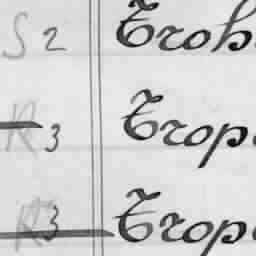 S 2 Troh
R 3 Trop
R 3 Trop